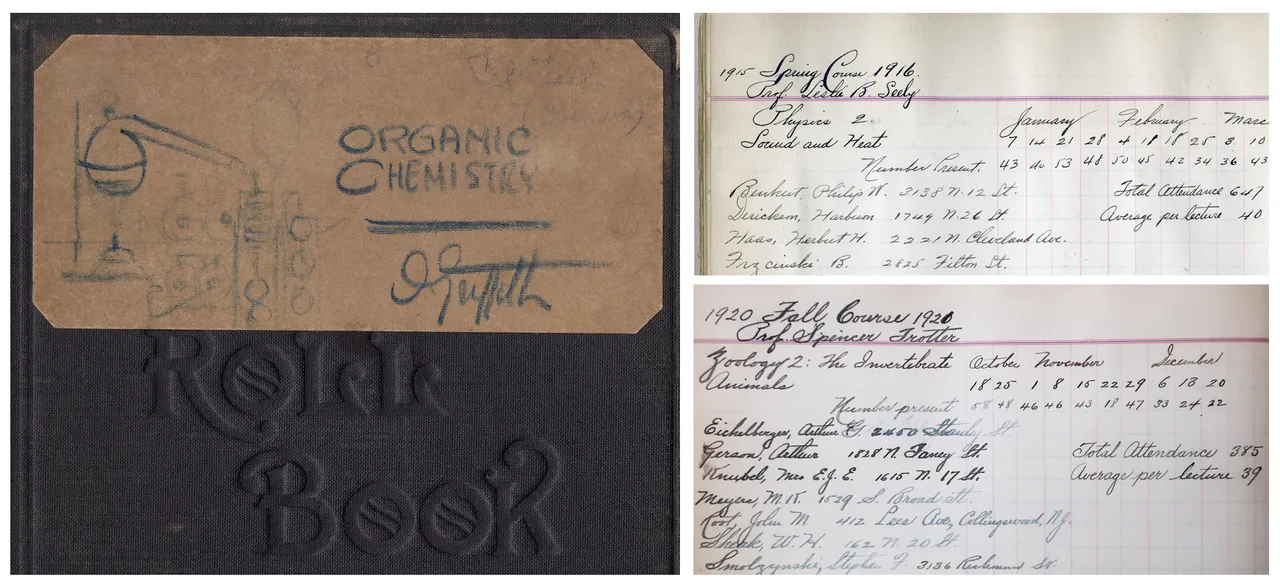 ORGANIC
CHEMISTRY
Griffith
ROLL
BOOK
1915 Spring Course 1916.
Prof. Leslie B. Seely
Physics 2 January February Marc
Sound and Heat 7 14 21 28 4 18 25 3 10
Number Present. 43 40 53 48 50 45 42 34 36 43
Benkert, Philip W. 3138 N. 12 St. Total Attendance 647
Derickson, Harbison 1749 N. 26 St. Average per lecture 40
Haas, Herbert H. 2221 N. Cleveland Ave.
B. 2825 Filton St.
1920 Fall Course 1920
Prof. Spencer Trotter
Zoology 2: The Invertebrate October November December
Animals 18 25 1 8 15 22 29 6 13 20
Number present 58 48 46 46 43 18 47 33 24 22
Eichelberger, Arthur G. 2450 St.
Gerson, Arthur 1828 N. Faney St Total Attendance 385
Knubel, Mrs E.J.E. 1615 N. 17 St. Average per lecture 39
Meyers, M.K. 1529 S. Broad St.
Root, John M. 412 Lees Ave, Collingswood, N.J.
Sheak, W. H. 162 N. 20 St.
Smolzynski, Stephen F. 3136 Richmond St.